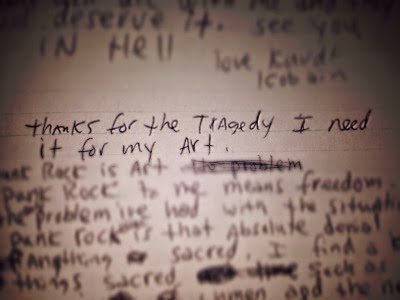 deserve it. see you
IN Hell
love Kurdt
Kobain
thanks for the Tragedy I need
it for my Art.
Punk Rock is Art the problem
Punk Rock to me means freedom.
the problem ive had with the situation
punk rock is that absolute denial
of anything sacred. I find a
things sacred such as
women and the